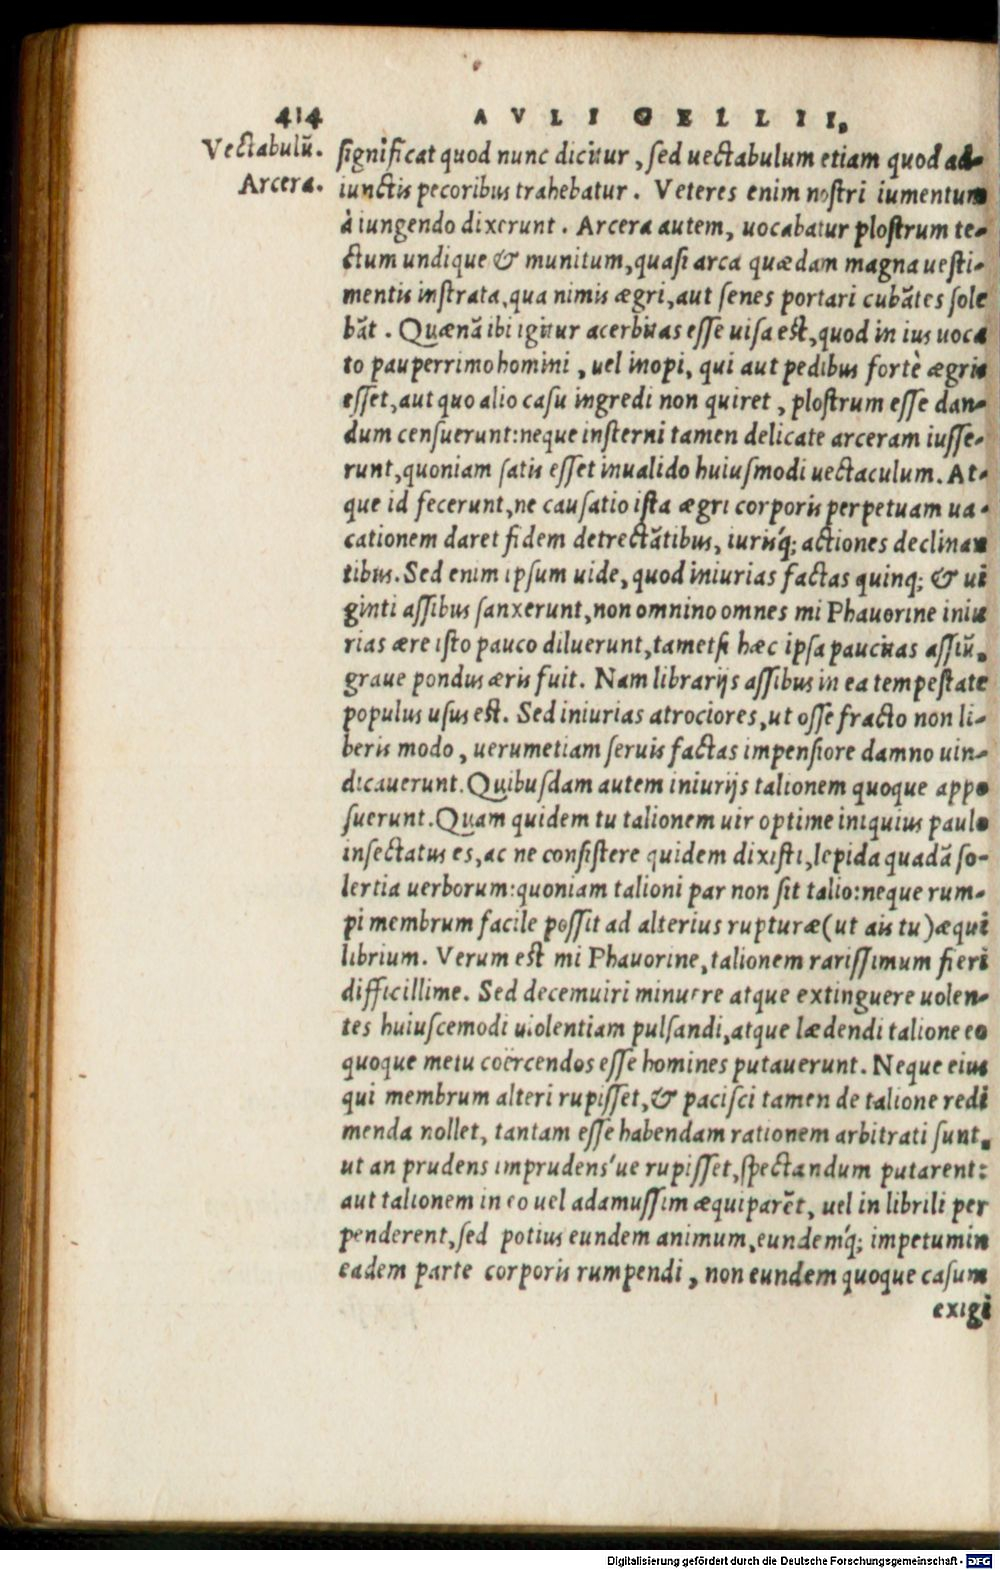 414 AVLI GELLII,
Vectabulū.
Arcera.
ſignificat quod nunc dicitur, ſed uectabulum etiam quod ad-
iunctis pecoribus trahebatur. Veteres enim noſtri iumentum
à iungendo dixerunt. Arcera autem, uocabatur ploſtrum te-
ctum undique & munitum, quaſi arca quædam magna ueſti-
mentis inſtrata, qua nimis ægri, aut ſenes portari cubātes ſole
bāt. Quænā ibi igitur acerbitas eſſe uiſa eſt, quod in ius uoca
to pauperrimo homini, uel inopi, qui aut pedibus fortè ægris
eſſet, aut quo alio caſu ingredi non quiret, ploſtrum eſſe dan-
dum cenſuerunt: neque inſterni tamen delicate arceram iuſſe-
runt, quoniam ſatis eſſet inualido huiuſmodi uectaculum. At-
que id fecerunt, ne cauſatio iſta ægri corporis perpetuam ua-
cationem daret fidem detrectātibus, iurisq́; actiones declinan
tibus. Sed enim ipſum uide, quod iniurias factas quinq; & ui
ginti aſſibus ſanxerunt, non omnino omnes mi Phauorine iniu
rias ære iſto pauco diluerunt, tametſi hæc ipſa paucitas aſſiū,
graue pondus æris fuit. Nam librarijs aſſibus in ea tempeſtate
populus uſus eſt. Sed iniurias atrociores, ut oſſe fracto non li-
beris modo, uerumetiam ſeruis factas impenſiore damno uin-
dicauerunt. Quibuſdam autem iniurijs talionem quoque appo
ſuerunt. Quam quidem tu talionem uir optime iniquius paulo
inſectatus es, ac ne conſiſtere quidem dixiſti, lepida quadā ſo-
lertia uerborum: quoniam talioni par non ſit talio: neque rum-
pi membrum facile poſſit ad alterius rupturæ (ut ais tu) æqui
librium. Verum eſt mi Phauorine, talionem rariſſimum fieri
difficillime. Sed decemuiri minuere atque extinguere uolen-
tes huiuſcemodi uiolentiam pulſandi, atque lædendi talione eo
quoque metu coërcendos eſſe homines putauerunt. Neque eius
qui membrum alteri rupiſſet, & paciſci tamen de talione redi
menda nollet, tantam eſſe habendam rationem arbitrati ſunt,
ut an prudens imprudens'ue rupiſſet, ſpectandum putarent:
aut talionem in eo uel adamuſſim æquiparēt, uel in librili per
penderent, ſed potius eundem animum, eundemq́; impetum in
eadem parte corporis rumpendi, non eundem quoque caſum
exigi
Digitalisierung gefördert durch die Deutsche Forschungsgemeinschaft - DFG